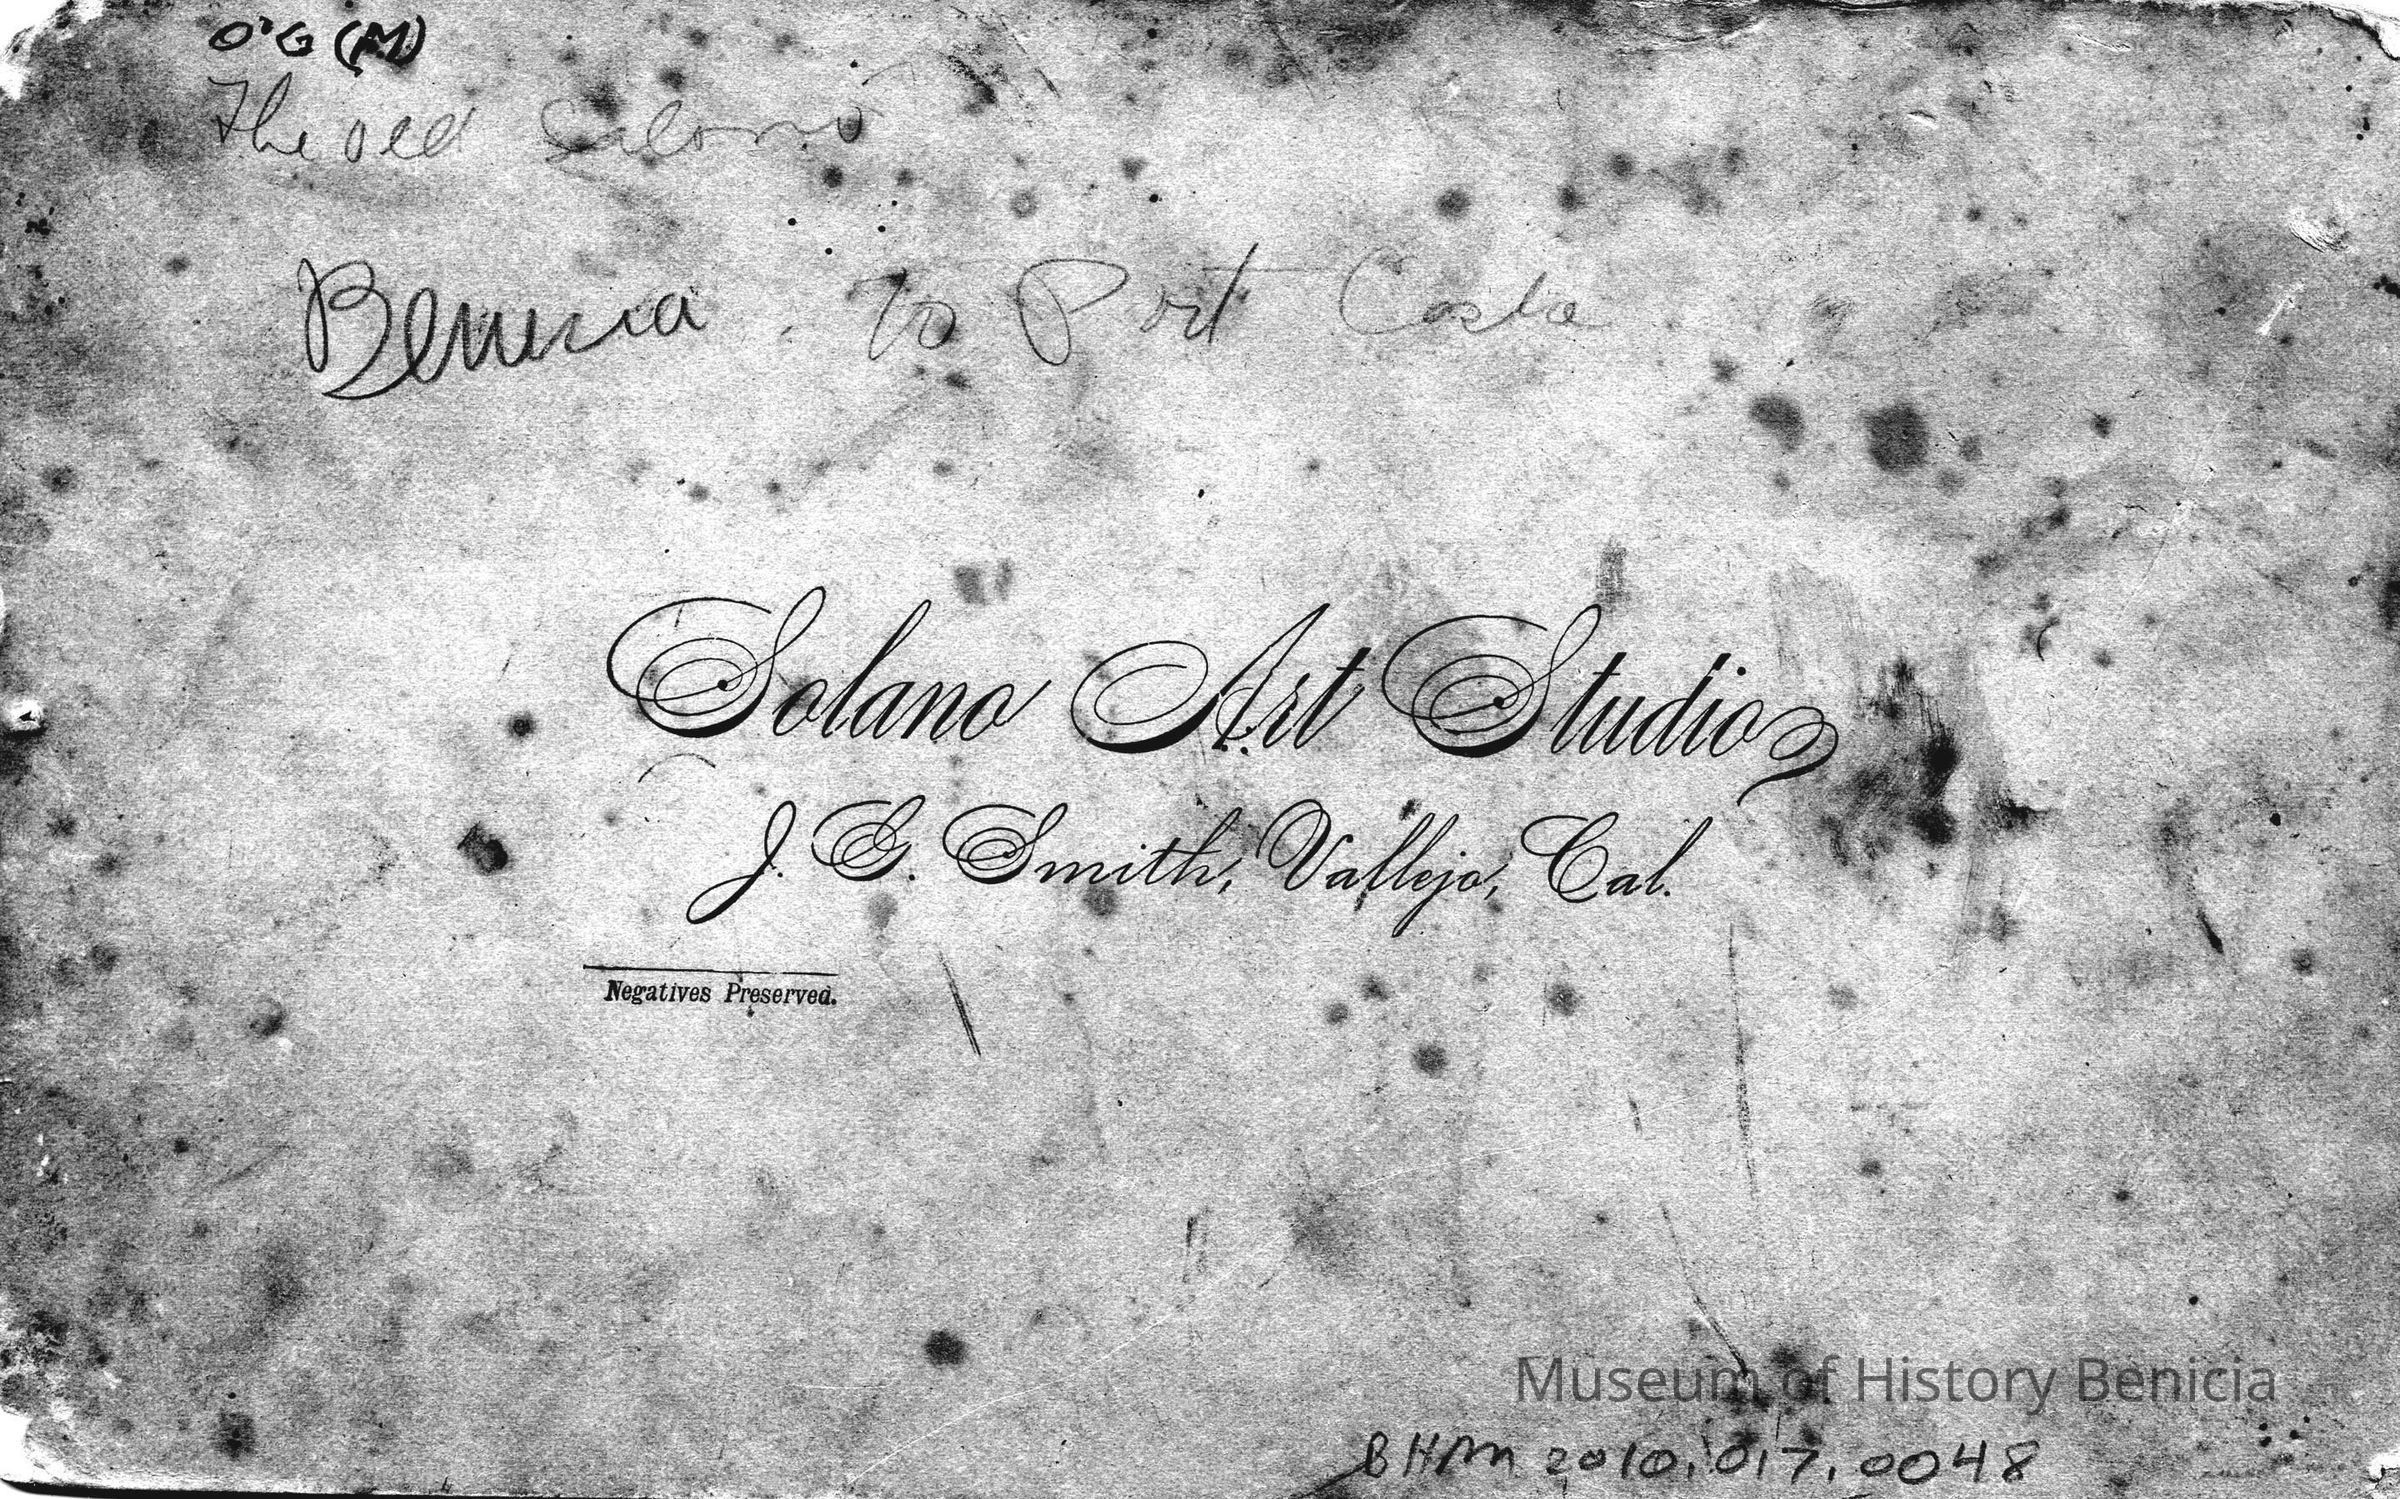 O'G (M)
The Old Solono
Benicia to Port Costa
Solano Art Studio
J. G. Smith, Vallejo, Cal.
Negatives Preserved.
Museum of History Benicia
BHM 2010.017.0048